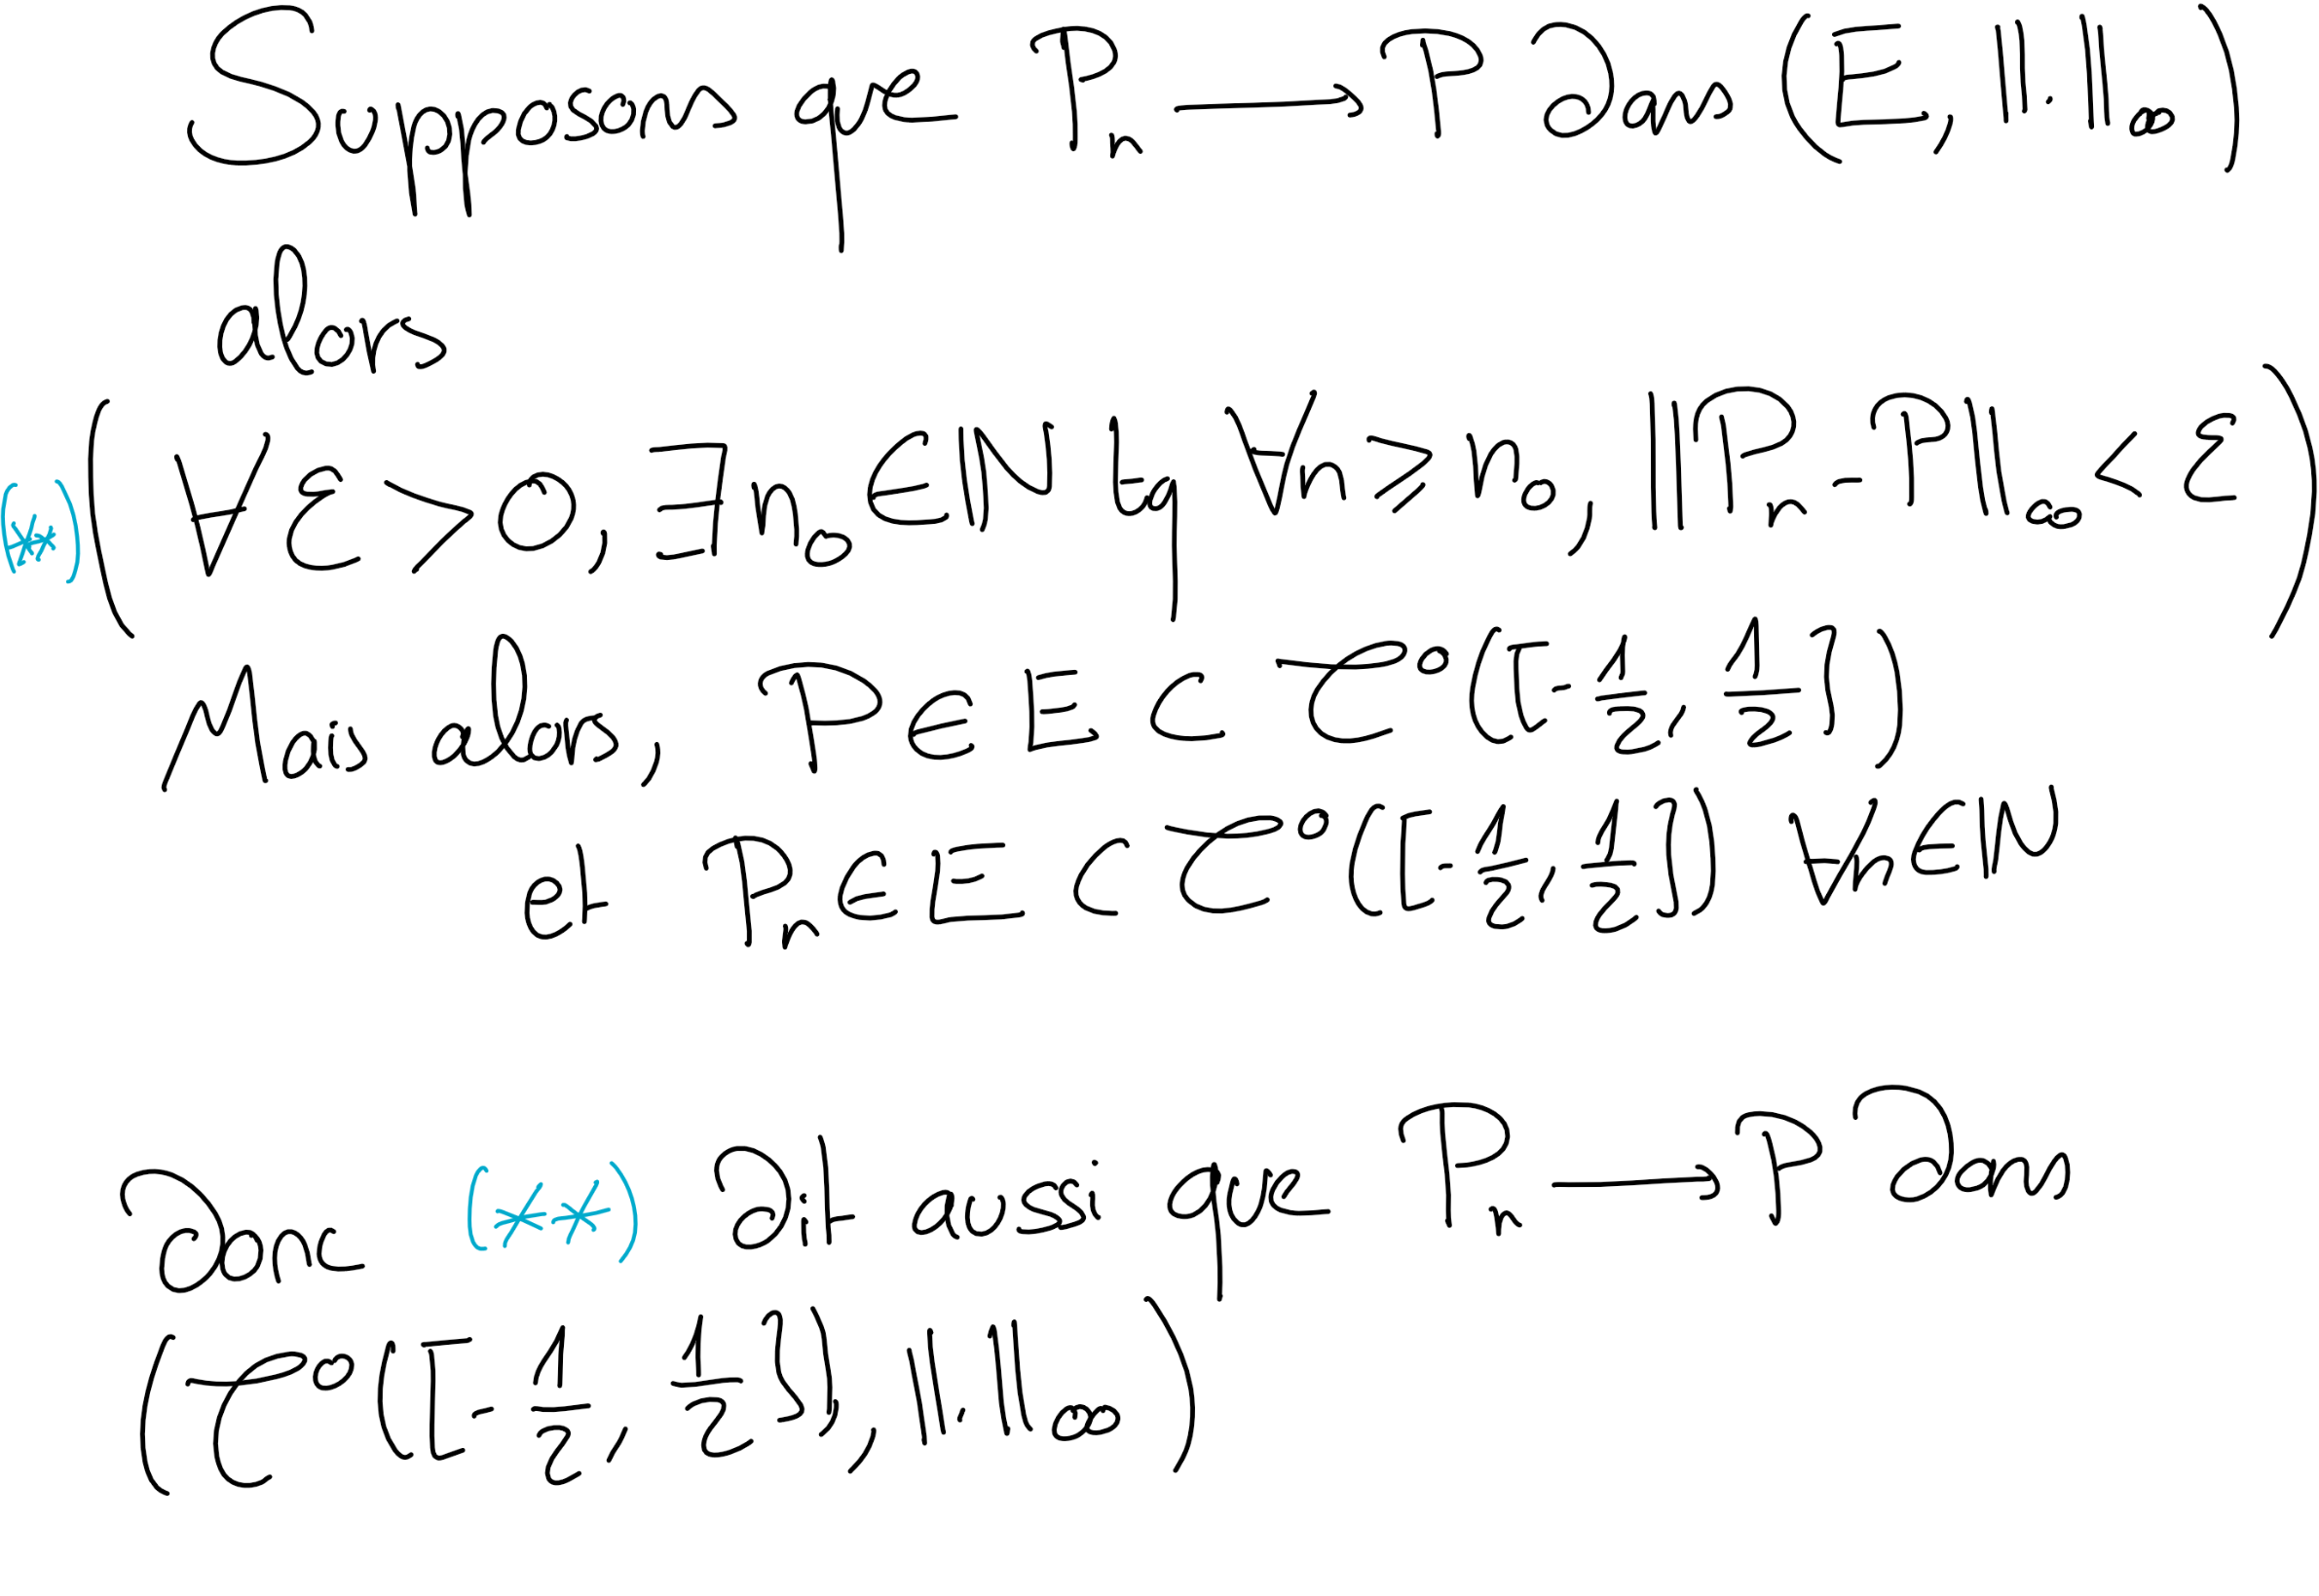 Supposons que Pₙ → P dans (E, ||.||∞)
alors
(**) (∀ε > 0, ∃n₀ ∈ ℕ tq ∀n ≥ n₀, ||Pₙ - P||∞ < ε)
Mais alors, P ∈ E ⊂ 𝒞⁰([-1/2, 1/2])
et Pₙ ∈ E ⊂ 𝒞⁰([-1/2, 1/2]) ∀n ∈ ℕ
donc (**) dit aussi que Pₙ → P dans
(𝒞⁰([-1/2, 1/2]), ||.||∞)